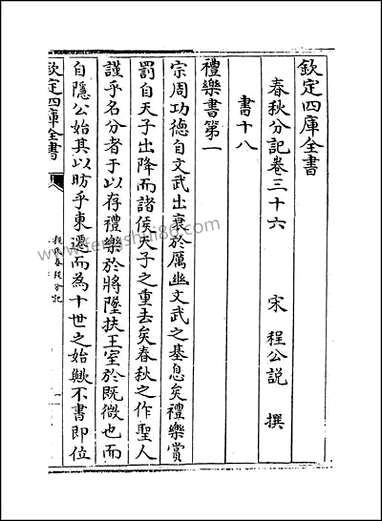 欽定四庫全書
春秋分記卷三十六
宋 程公說 撰
書十八
禮樂書第一
宗周功德自文武出衰於厲幽文武之基息矣禮樂賞
罰自天子出降而諸侯天子之重去矣春秋之作聖人
謹乎名分者于以存禮樂於將墜扶王室於既微也而
自隱公始其以昉乎東遷而為十世之始歟不書即位
欽定四庫全書
程氏春秋分記
一